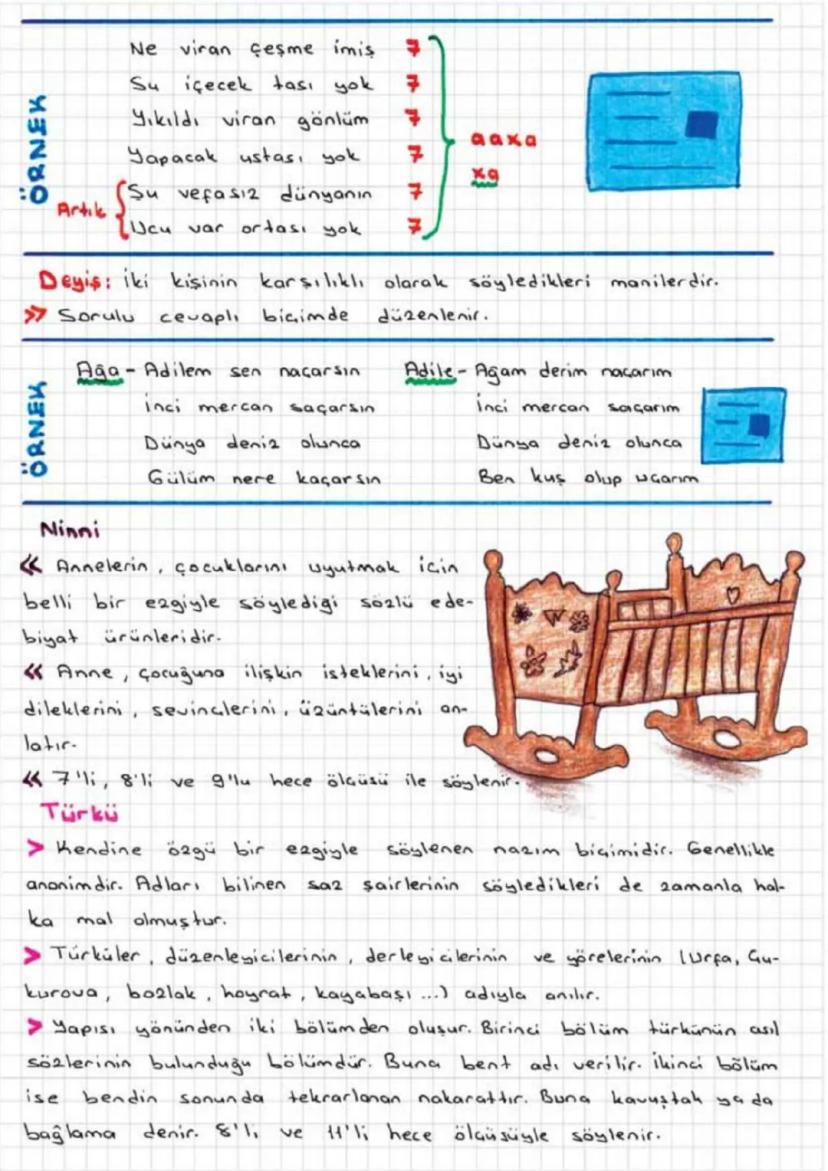 ÖRNEK
Ne viran çeşme imiş 7
Su içecek tası yok 7
Yıkıldı viran gönlüm 7
Yapacak ustası yok 7
Artık
Şu vefasız dünyanın 7
Ucu var ortası yok 7
aaxa
xa
Deyiş: İki kişinin karşılıklı olarak söyledikleri manilerdir.
>> Sorulu cevaplı biçimde düzenlenir.
ÖRNEK
Ağa - Adilem sen naçarsın
İnci mercan saçarsın
Dünya deniz olunca
Gülüm nere kaçarsın
Adile - Ağam derim naçarım
İnci mercan saçarım
Dünya deniz olunca
Ben kuş olup uçarım
Ninni
<< Annelerin, çocuklarını uyutmak için
belli bir ezgiyle söylediği sözlü ede-
biyat ürünleridir.
<< Anne, çocuğuna ilişkin isteklerini, iyi
dileklerini, sevinçlerini, üzüntülerini an-
latır.
<< 7'li, 8'li ve 9'lu hece ölçüsü ile söylenir.
Türkü
> Kendine özgü bir ezgiyle söylenen nazım biçimidir. Genellikle
anonimdir. Adları bilinen saz şairlerinin söyledikleri de zamanla hal-
ka mal olmuştur.
> Türküler, düzenleyicilerinin, derleyicilerinin ve yörelerinin (Urfa, Çu-
kurova, bozlak, hoyrat, kayabaşı ...) adıyla anılır.
> Yapısı yönünden iki bölümden oluşur. Birinci bölüm türkünün asıl
sözlerinin bulunduğu bölümdür. Buna bent adı verilir. İkinci bölüm
ise bendin sonunda tekrarlanan nakarattır. Buna kavuştak ya da
bağlama denir. 8'li ve 11'li hece ölçüsüyle söylenir.